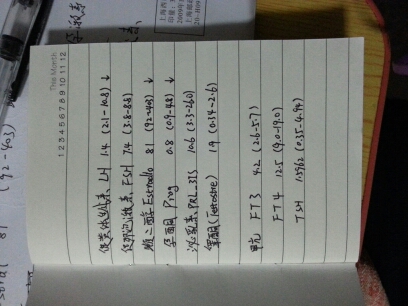 This Month
1 2 3 4 5 6 7 8 9 10 11 12
促黄体生成素, LH 1.4 (2.1-10.8) ↓
促卵泡激素, FSH 7.4 (3.8-8.8)
雌二醇 Estradio 81 (92-403) ↓
孕酮 Prog 0.8 (0.9-4.8) ↓
泌乳素 PRL_3IS 10.6 (3.3-26.0)
睾酮 (Testosine) 1.9 (0.34-2.6)
FT3 4.2 (2.6-5.7)
FT4 12.5 (9.0-19.0)
TSH 1.5962 (0.35-4.94)
(92-403)